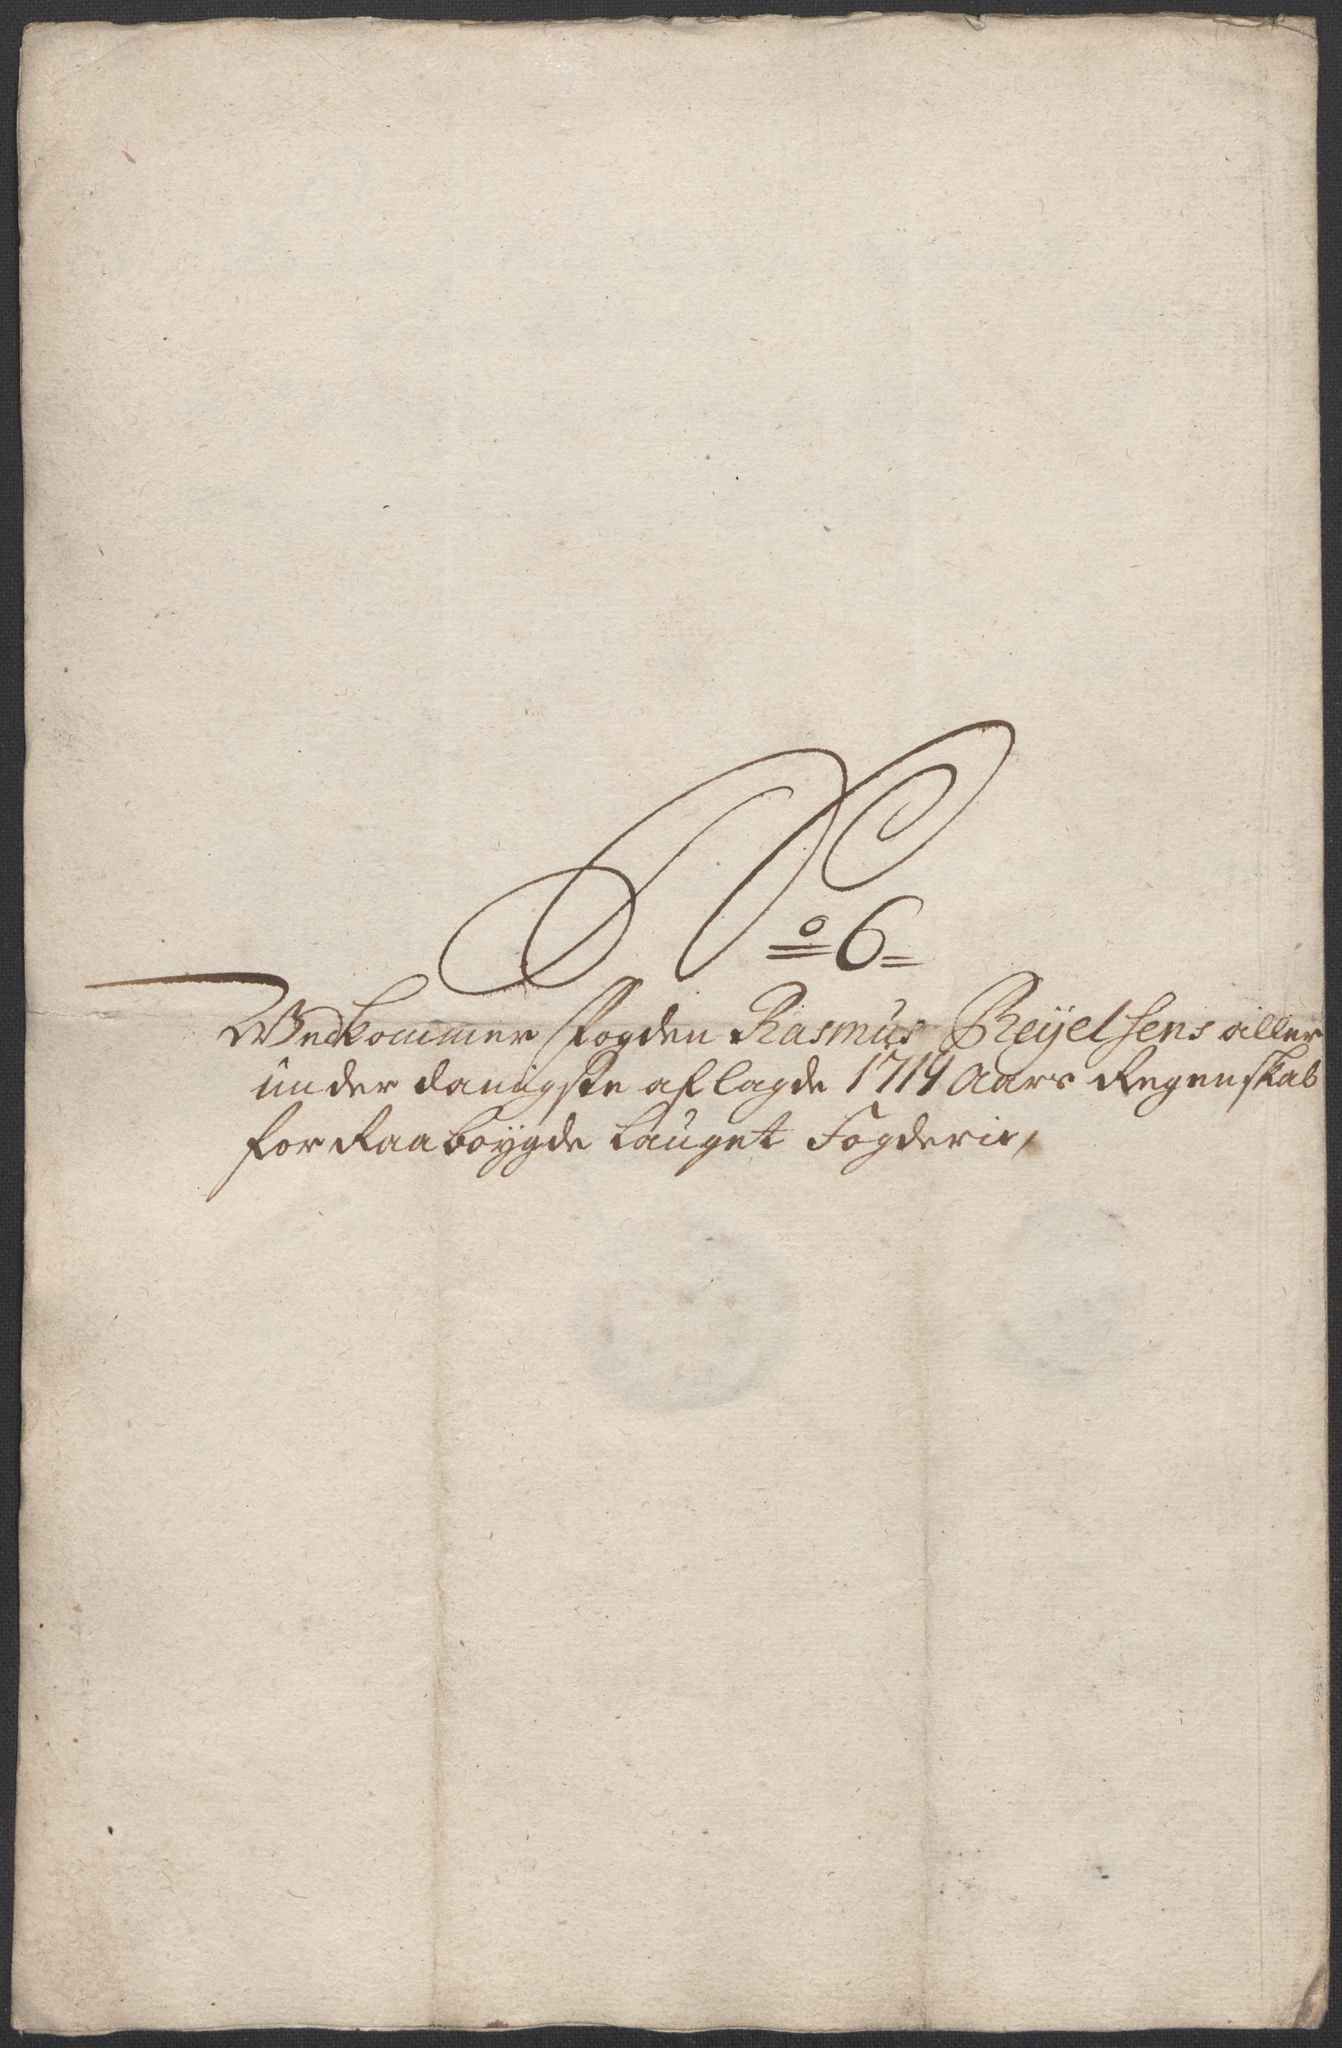 No 6
Wedkommer Fogden Rasmus Reijelsens aller
underdanigste aflagde 1714 Aars Regenskab
for Raaboygde lauget Fogderie,